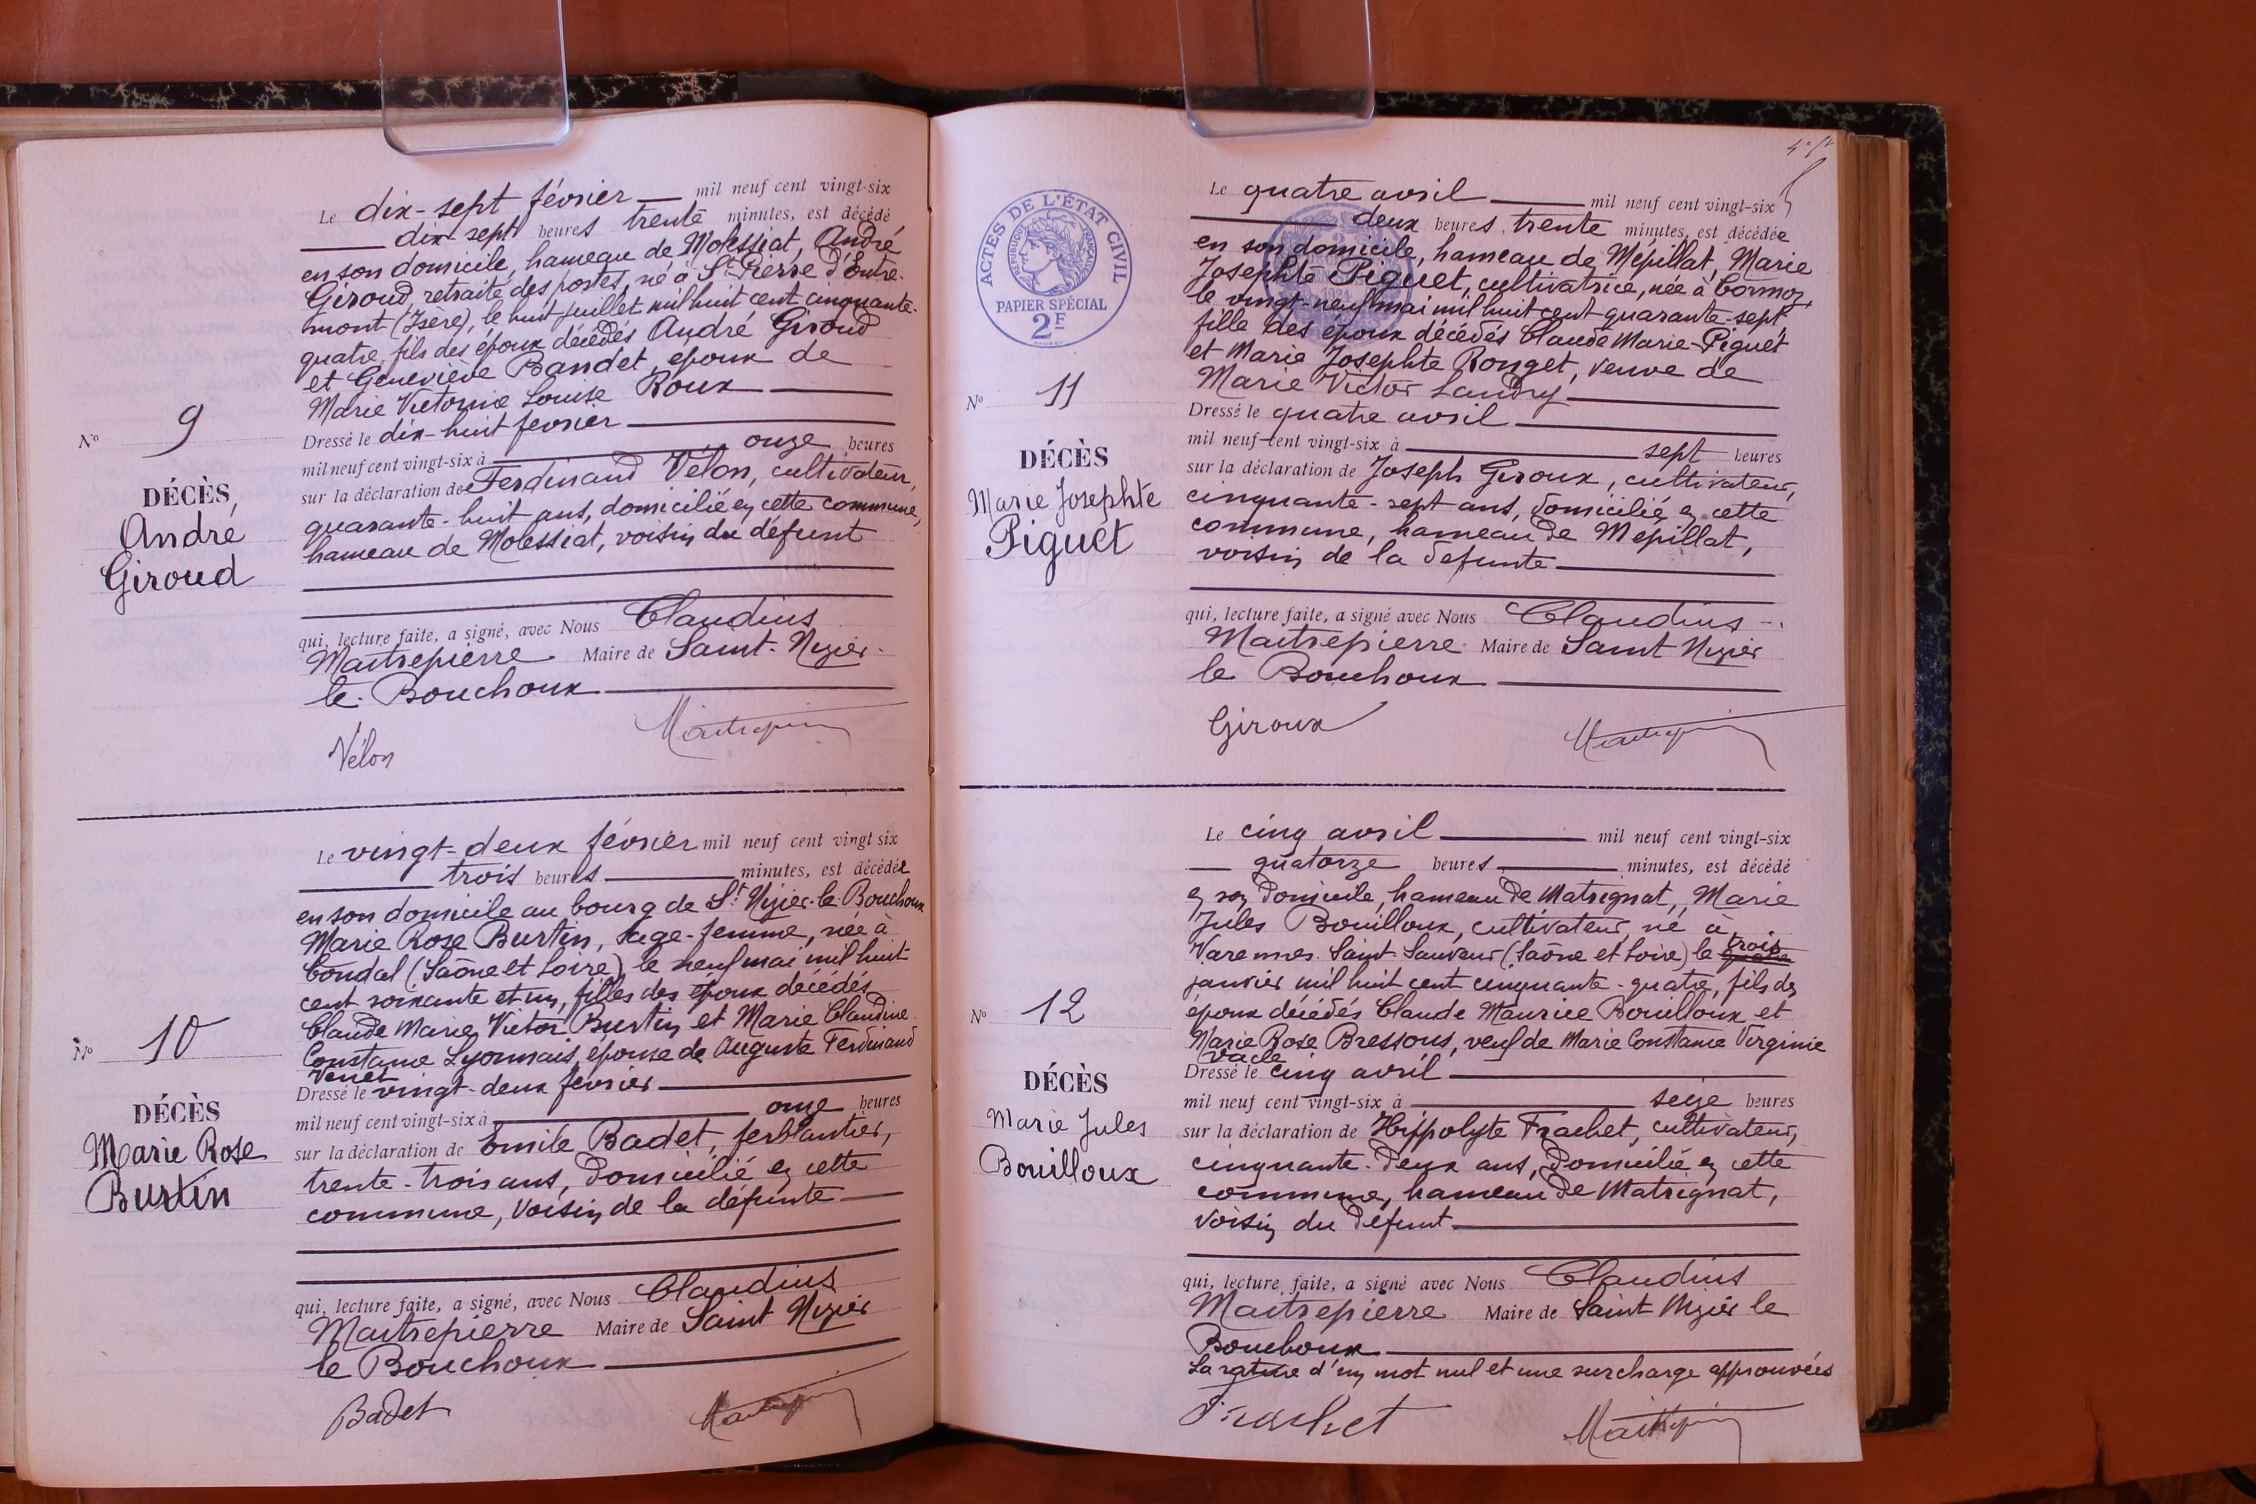 Le dix-sept février mil neuf cent vingt-six
dix-sept heures trente minutes, est décédé
en son domicile, hameau de Molessiat, André
Giroud, retraité des postes, né à St Pierre d'Entre-
mont (Isère), le huit juillet mil huit cent cinquante-
quatre, fils des époux décédés André Giroud
et Geneviève Bandet, époux de
Marie Victorine Louise Roux
N° 9
DÉCÈS,
André
Giroud
Dressé le dix-huit février
mil neuf cent vingt-six à onze heures
sur la déclaration de Ferdinand Vélon, cultivateur,
quarante-huit ans, domicilié en cette commune,
hameau de Molessiat, voisin du défunt
qui, lecture faite, a signé, avec Nous Claudius
Maitrepierre Maire de Saint-Nizier-
le-Bouchoux
Vélon Maitrepierre
Le vingt-deux février mil neuf cent vingt six
trois heures minutes, est décédée
en son domicile au bourg de St Nizier-le-Bouchoux
Marie Rose Burtin, sage-femme, née à
Condal (Saône et Loire), le neuf mai mil huit
cent soixante et un, filles des époux décédés
Claude Marie Victor Burtin et Marie Claudine
Constance Lyonnais, épouse de Auguste Ferdinand
Venet
N° 10
DÉCÈS
Marie Rose
Burtin
Dressé le vingt-deux février
mil neuf cent vingt-six à onze heures
sur la déclaration de Emile Badet, ferblantier,
trente-trois ans, domicilié en cette
commune, voisin de la défunte
qui, lecture faite, a signé, avec Nous Claudius
Maitrepierre Maire de Saint Nizier
le Bouchoux
Badet Maitrepierre
ACTES DE L'ÉTAT CIVIL
RÉPUBLIQUE FRANÇAISE
PAPIER SPÉCIAL
2F
Le quatre avril mil neuf cent vingt-six
deux heures trente minutes, est décédée
en son domicile, hameau de Mépillat, Marie
Josephte Piguet, cultivatrice, née à Cormoz,
le vingt-neuf mai mil huit cent quarante-sept,
fille des époux décédés Claude Marie Piguet
et Marie Josephte Ronget, veuve de
Marie Victor Landry
N° 11
DÉCÈS
Marie Josephte
Piguet
Dressé le quatre avril
mil neuf cent vingt-six à sept heures
sur la déclaration de Joseph Giroux, cultivateur,
cinquante-sept ans, domicilié en cette
commune, hameau de Mépillat,
voisin de la défunte
qui, lecture faite, a signé avec Nous Claudius
Maitrepierre Maire de Saint Nizier
le Bouchoux
Giroux Maitrepierre
Le cinq avril mil neuf cent vingt-six
quatorze heures minutes, est décédé
en son domicile, hameau de Matrignat, Marie
Jules Bouilloux, cultivateur, né à
Varennes Saint Sauveur (Saône et Loire) le quatre trois
janvier mil huit cent cinquante-quatre, fils des
époux décédés Claude Maurice Bouilloux et
Marie Rose Bressous, veuf de Marie Constance Virginie
Vacle
N° 12
DÉCÈS
Marie Jules
Bouilloux
Dressé le cinq avril
mil neuf cent vingt-six à seize heures
sur la déclaration de Hippolyte Frachet, cultivateur,
cinquante-deux ans, domicilié en cette
commune, hameau de Matrignat,
voisin du défunt
qui, lecture faite, a signé avec Nous Claudius
Maitrepierre Maire de Saint Nizier le
Bouchoux
La rature d'un mot nul et une surcharge approuvées
Frachet Maitrepierre